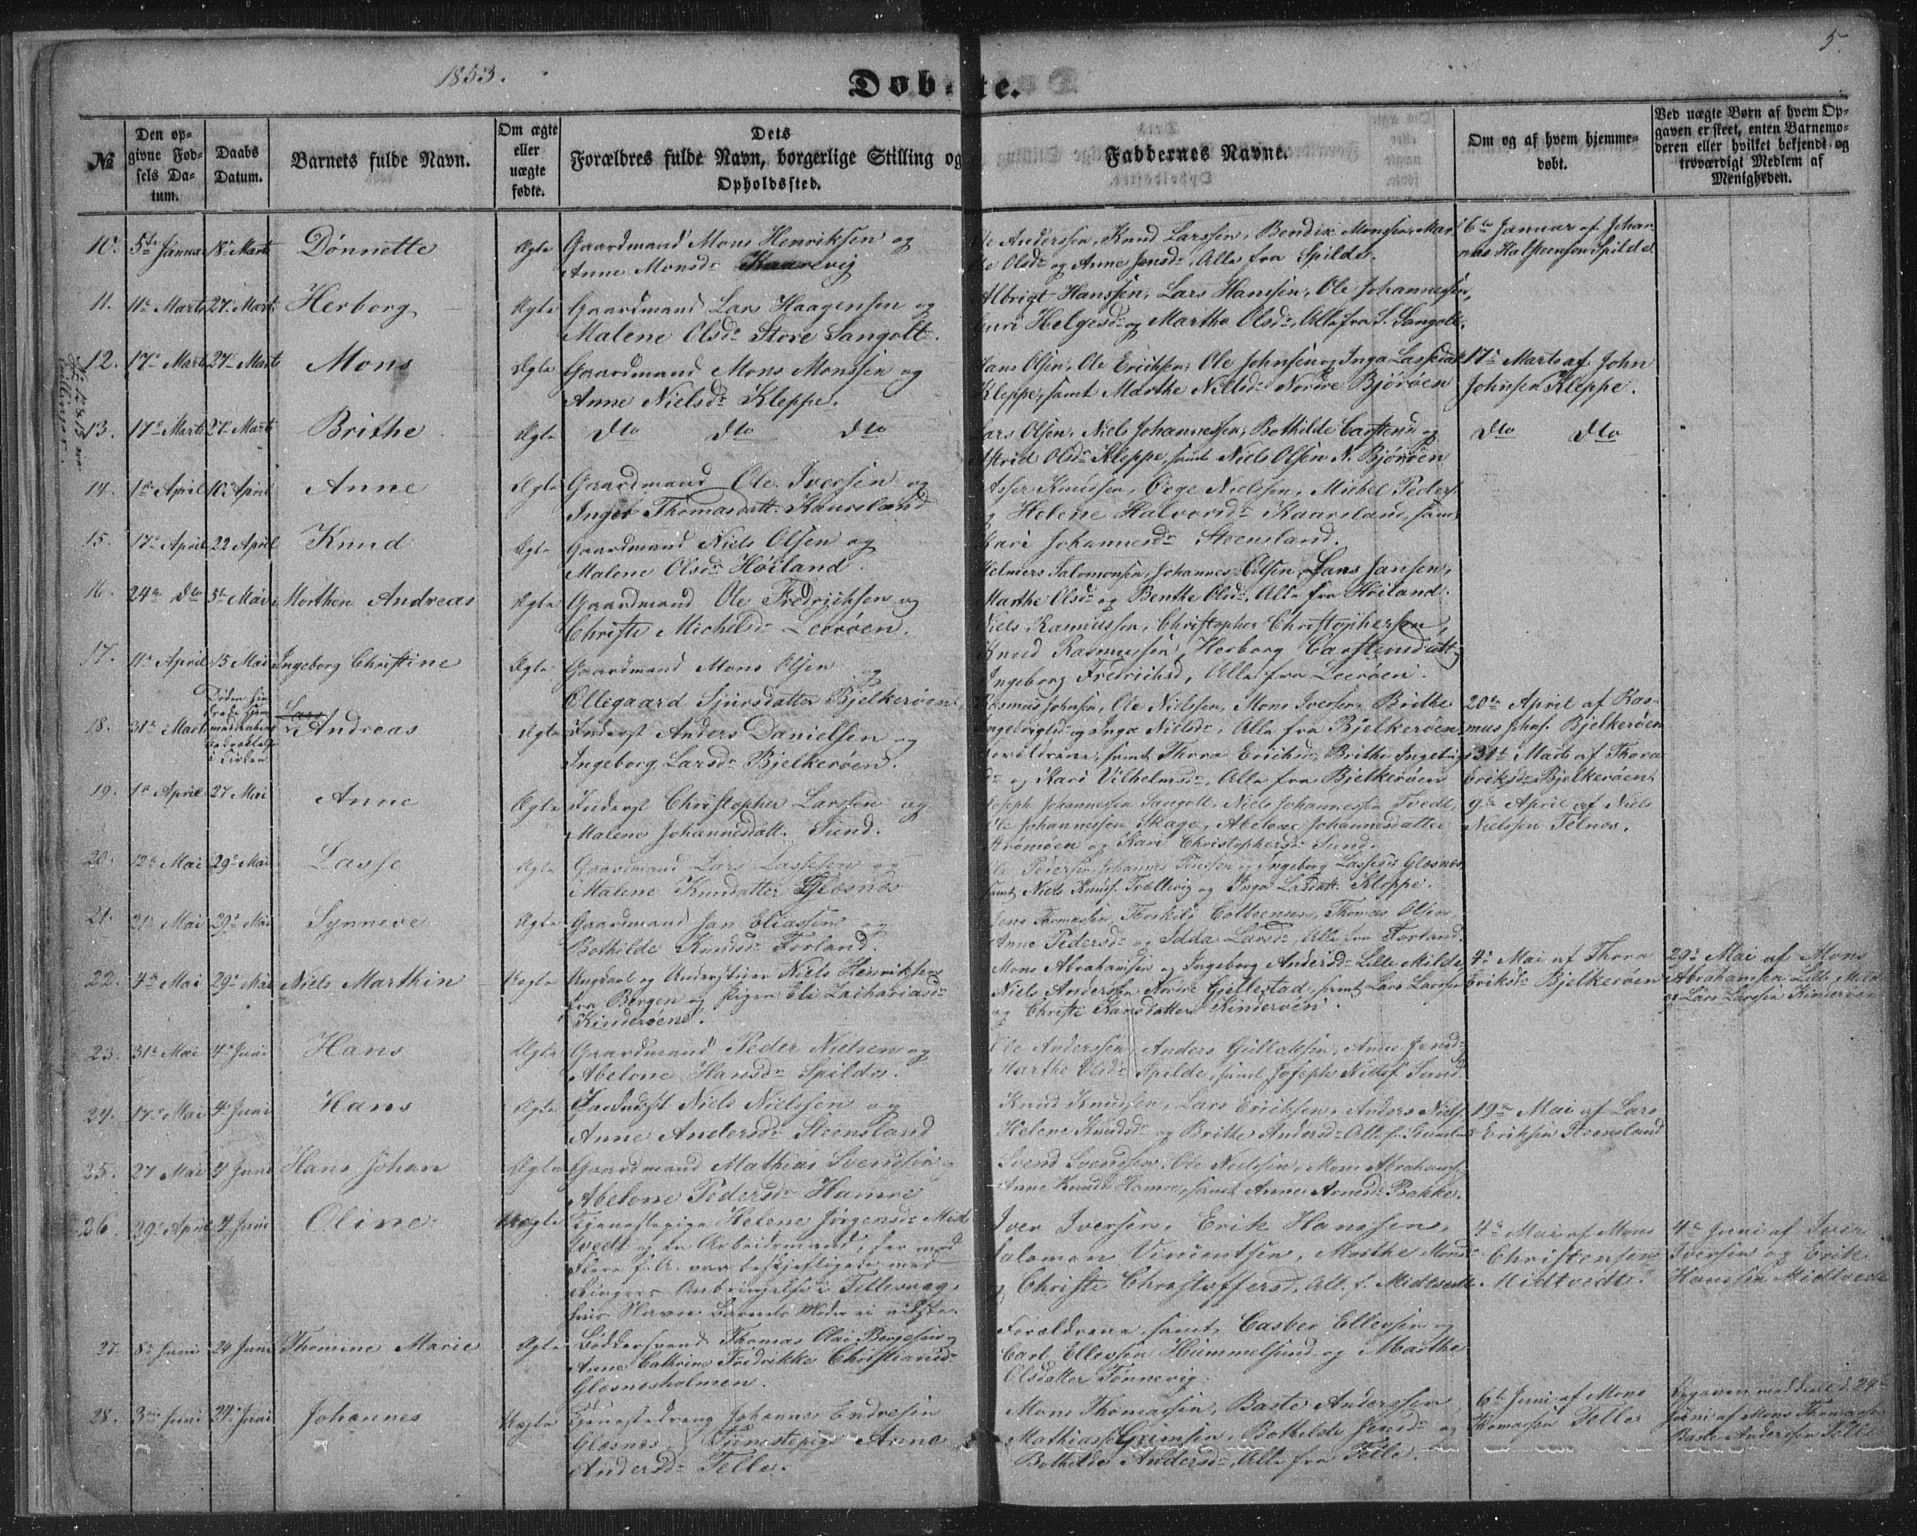 1853.
Døbte.
5.
№
Den opgivne Fødsels Datum.
Daabs Datum.
Barnets fulde Navn.
Om ægte eller uægte fødte.
Dets Forældres fulde Navn, borgerlige Stilling og Opholdssted.
Faddernes Navne.
Om og af hvem hjemmedøbt.
Ved uægte Børn af hvem Opgaven er skeet, enten Barnemoderen eller hvilket bekjendt og troværdigt Medlem af Menigheden.
No 12 & 13 ere Tvillinger.
10. 5te Januar 18de Marts Dønnette Ægte Gaardmand Mons Henriksen og
Anne Monsdr Kaarevig
Ole Anderssen, Knud Larssen, Bendix Monssen, Mar
Olsdr og Anne Jensdr, Alle fra Spilde.
6te Januar af Johan
nes Spilde
11. 11te Marts 27de Marts Herborg Ægte Gaardmand Lars Haagensen og
Malene Olsdr Store Sangolt.
Albrigt Hanssen, Lars Hansen, Ole Johannessen,
Guri Helgesdr og Martha Olsdr, Alle fra S. Sangolt.
12. 17de Marts 27de Marts Mons Ægte Gaardmand Mons Monssen og
Anne Nielsdr Kleppe.
Hans Olsen, Ole Eriksen, Ole Johnsen og Inga Lassedatr
Kleppe, samt Marthe Nielsdr Nordre Bjørøen
17de Marts af John
Johnsen Kleppe.
13. 17de Marts 27de Marts Brithe Ægte Dto Dto Dto
Lars Olsen, Niels Johannessen, Bothilde Carstensd og
Astrid Olsdr Kleppe, samt Niels Olsen N. Bjørøen
Dto Dto
14. 1ste April 10de April Anne Ægte Gaardmand Ole Iversen og
Inger Thomasdatt. Kaursland
Asser Knudsen, Aage Nielsen, Mickel Peders.
og Helene Halvorsdr Kaarsland, samt
Kari Johannesdr Steensland.
15. 17de April 22 April Knud Ægte Gaardmand Niels Olsen og
Malene Olsdr Høiland.
Helmers Salomonsen, Johannes Olsen, Hans Jansen,
Marthe Olsdr og Benthe Olsdr, Alle fra Høiland.
16. 24de Dto 5te Mai Morthen Andreas Ægte Gaardmand Ole Fredriksen og
Christi Michelsdr Leerøen.
Niels Rasmussen, Christopher Christophersen,
Knud Rasmussen, Herborg Carstensdatt.
Ingeborg Fredriksd, Alle fra Leerøen.
17. 11te April 15 Mai Ingeborg Christine Ægte Gaardmand Mons Olsen og
Ellegaard Sjursdatter Bjelkerøen.
Rasmus Johnsen, Ole Nielsen, Mons Iversen, Brithe
og Inga Nielsdr, Alle fra Bjelkerøen
20de April af Ras
mus Johns. Bjelkerøen
18. 31te Marts Lars Andreas Ægte Inderst Anders Danielsen og
Ingeborg Larsdr Bjelkerøen.
Forældrene, samt Thora Eriksdr, Brithe Ingebrigts
dr og Kari Vilhelmsdr, Alle fra Bjelkerøen
31te Marts af Thora
Eriksdr Bjelkerøen.
19. 1ste April 27 Mai Anne Ægte Inderst Christopher Larsen og
Malene Johannesdatt. Sund.
Joseph Johannessen Sangolt, Niels Johannessen Tvedt,
Ole Johannessen Skage, Abelone Johannesdatter
og Kari Christophersdr Sund.
9de April af Niels
Nielsen Telnes.
20. 12te Mai 29de Mai Lasse Ægte Gaardmand Lars Lassesen og
Malene Knudsdatter Glesnes
Ole Pedersen, Johannes og Ingeborg Lassesdr Glesnes,
samt Niels Knuds. Trellevig og Inga Larsdatt. Kleppe.
21. 21de Mai 29de Mai Synneve Ægte Gaardmand Jan Eliassen og
Bothilde Knudsdr Forland.
Jens Thomassen, Thorkild Colbeensen, Thomas Olsen
Anne Pedersdr og Idda Larsdr, Alle fra Forland.
22. 4de Mai 29de Mai Niels Marthin Uægte Ungkarl og Understyrer Niels Henriksen
fra Bergen og Pigen Eli Zachariasdr
Kinderøen.
Mons Abrahamsen og Ingeborg Andersdr Lille Milde,
Niels Andersen Nordre Gjellestad, samt Lars Larsen
og Christi Hansdatter Kinderøen.
4de Mai af Thora
Eriksdr Bjelkerøen
29de Mai af Mons
Abrahamsen Lille Milde
og Lars Larsen Kinderøen
23. 31te Mai 4de Juni Hans Ægte Gaardmand Peder Nielsen og
Abelone Hansdr Spilde.
Ole Anderssen, Anders Gullaksen, Anne Jensdr
Marthe Olsdr Spilde, samt Joseph Niels. Sund
24. 17de Mai 4de Juni Hans Ægte Inderst Niels Nielsen og
Anne Andersdr Steensland
Knud Knudsen, Lars Eriksen, Anders Niels.
Helene Knudsdr og Brithe Andersdr
19de Mai af Lars
Eriksen Steensland
25. 27 Mai 4 Juni Hans Johan Ægte Gaardmand Mathias Svendsen
Abelone Pedersdr Hamre
Svend Svendsen, Ole Nielsen, Mons Abrahams.
Anne Knudsdr Hamre, samt Anne Arnesdr Bakke.
26. 29de April 4 Juni Oline Uægte Tjenestepige Helene Jørgensdr Midt
tvedt og en Arbeidsmand, der med
flere f. A. var beskjeftiget med
Anbringelse i Tellevaag,
hvis Navn Barnets Moder ei vidste.
Iver Iversen, Erik Hanssen,
Salomon Vincentsen, Marthe Monsdr
og Christi Christoffersd. Alle f. Midttvedt
4de Mai af Mons
Christensen
Midtvedt.
4de Juni af Iver
Iversen og Erik
Hanssen Midttvedt
27. 8de Juni 24 Juni Thomine Marie Ægte Bødkersvend Thomas Olai Børgesen og
Anne Cathrine Fredrikke Christiansdr
Glesnesholmen.
Forældrene, samt Casber Ellevsen og
Carl Ellevsen Hummelsund og Marthe
Olsdatter Tønnevig.
28. 3die Juni 24de Juni Johannes Uægte Tjenestedreng Johannes Endresen
Glesnes, Tjenestepige Anne
Andersdr Telle.
Mons Thomassen, Baste Anderssen,
Mathias Grimsen, Bothilde Jensdr og
Bothilde Andersdr, Alle fra Telle.
6te Juni af Mons
Thomassen Telle
Opgaven meddeelt d. 24de
Juni af Mons Thomassen
Baste Andersen Telle